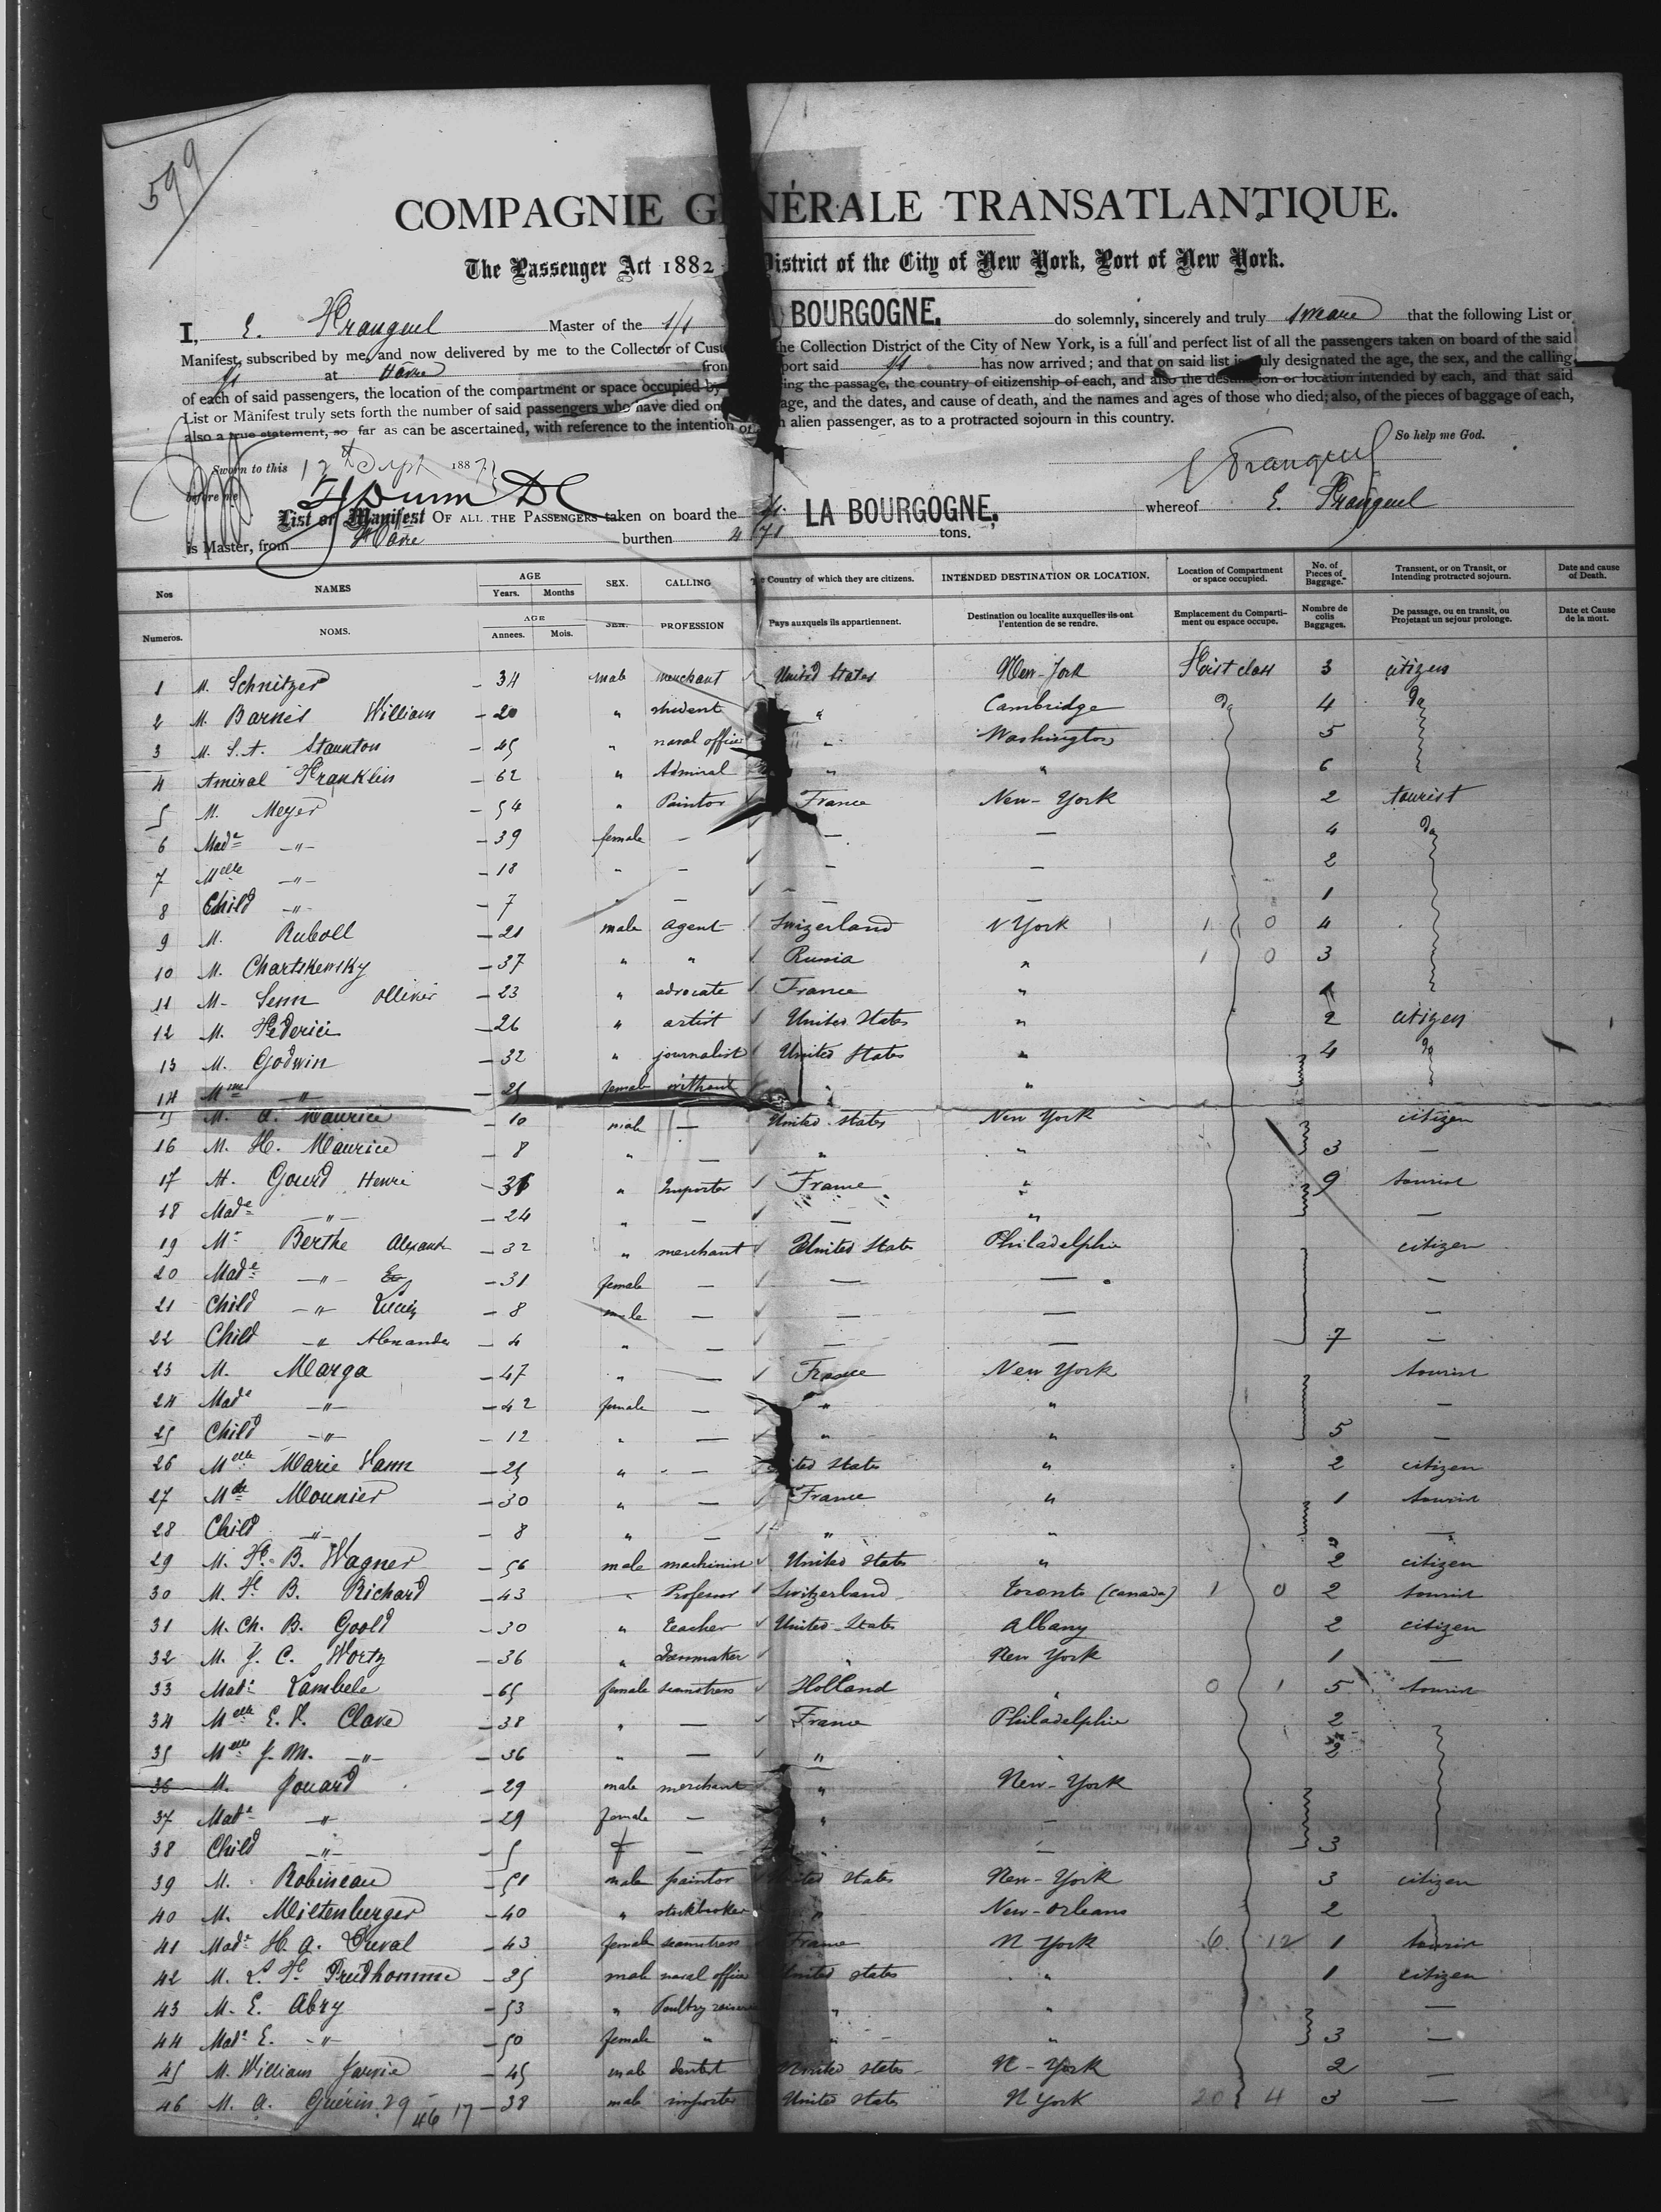 599
COMPAGNIE G NÉRALE TRANSATLANTIQUE.
The Passenger Act 1882 District of the City of New York, Port of New York.
I, E. Franguel Master of the S/S BOURGOGNE. do solemnly, sincerely and truly swear that the following List or
Manifest, subscribed by me, and now delivered by me to the Collector of Cust he Collection District of the City of New York, is a full and perfect list of all the passengers taken on board of the said
at Havre from port said has now arrived; and that on said list is truly designated the age, the sex, and the calling
of each of said passengers, the location of the compartment or space occupied by ing the passage, the country of citizenship of each, and also the destination or location intended by each, and that said
List or Manifest truly sets forth the number of said passengers who have died on age, and the dates, and cause of death, and the names and ages of those who died; also, of the pieces of baggage of each,
also a true statement, so far as can be ascertained, with reference to the intention of alien passenger, as to a protracted sojourn in this country.
So help me God.
Sworn to this 12th Sept 1887
before me
E Franguel
List or Manifest OF ALL THE PASSENGERS taken on board the LA BOURGOGNE, whereof E. Franguel
is Master, from Havre burthen tons.
Nos NAMES AGE Years. Months SEX. CALLING Country of which they are citizens. INTENDED DESTINATION OR LOCATION. Location of Compartment or space occupied. No. of Pieces of Baggage. Transient, or on Transit, or Intending protracted sojourn. Date and cause of Death.
Numeros. NOMS. AGE Annees. Mois. SEX. PROFESSION Pays auxquels ils appartiennent. Destination ou localite auxquelles ils ont l'entention de se rendre. Emplacement du Compartiment ou espace occupe. Nombre de colis Baggages. De passage, ou en transit, ou Projetant un sejour prolonge. Date et Cause de la mort.
1 M. Schnitzer - 34 male merchant United States New-York First class 3 citizen
2 M. Barnes William - 20 " student " Cambridge do 4 do
3 M. S.A. Staunton - 45 " naval officer " Washington 5
4 Amiral Franklin - 62 " Admiral " " 6
5 M. Meyer - 54 " Painter France New-York 2 tourist
6 Made -"- - 39 female - - - 4 do
7 Melle -"- - 18 " - - - 2
8 Child -"- - 7 " - - - 1
9 M. Ruboll - 21 male agent Swizerland N York 1 0 4
10 M. Chartskewsky - 37 " " Russia " 1 0 3
11 M- Senn Ollivier - 23 " advocate France " 1
12 M. Féderici - 26 " artist United States " 2 citizen
13 M. Godwin - 32 " journalist United States " 4 do
14 Mme -"- - 25 female without " "
15 M. A. Maurice - 10 male - United States New York citizen
16 M. H. Maurice - 8 " - " " 3 -
17 M. Gourd Henri - 36 " Importer France " 9 tourist
18 Made -"- - 24 " - - " -
19 Mr Berthe Alexandre - 32 " merchant United States Philadelphie citizen
20 Made -"- - 31 female - - - -
21 Child -"- Lucien - 8 male - - - -
22 Child -"- Alexandre - 4 " - - - 7 -
23 M. Marga - 47 " - France New York tourist
24 Made -"- - 42 female - " " -
25 Child -"- - 12 " - " " 5 -
26 Melle Marie Hann - 25 " - ited States " 2 citizen
27 Mde Mounier - 30 " - France " 1 tourist
28 Child -"- - 8 " - " " -
29 M. F. B. Wagner - 56 male machinist United States " 2 citizen
30 M. F. B. Richard - 43 " Professor Switzerland Toronto (Canada) 1 0 2 tourist
31 M. Ch. B. Goold - 30 " teacher United States Albany 2 citizen
32 M. J. C. Wortz - 36 " " New York 1 -
33 Made Lambele - 65 female seamstress Holland " 0 1 5 tourist
34 Melle E. V. Clave - 38 " - France Philadelphie 2
35 Melle J. M. -"- - 36 " - " " 2
36 M. Jouard - 29 male merchant " New-York
37 Made -"- - 29 female - " -
38 Child -"- - 5 f - " - 3
39 M. Robineau - 51 male painter ited States New-York 3 citizen
40 M. Miltenberger - 40 " stockbroker " New-Orleans 2
41 Made H. A. Duval - 43 female seamstress France N York 6 12 1 tourist
42 M. L. F. Prudhomme - 35 male naval officer United States " 1 citizen
43 M. E. Abry - 53 " Poultry raiser " " -
44 Made E. -"- - 50 female " " " 3 -
45 M. William Jarvie - 45 male dentist United States N-York 2 -
46 M. A. Guérin - 38 male importer United States N York 20 4 3 -
29 46 17